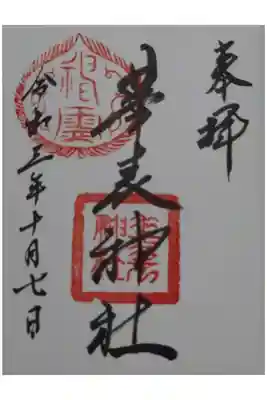 奉拝
華表神社
令和三年十月七日